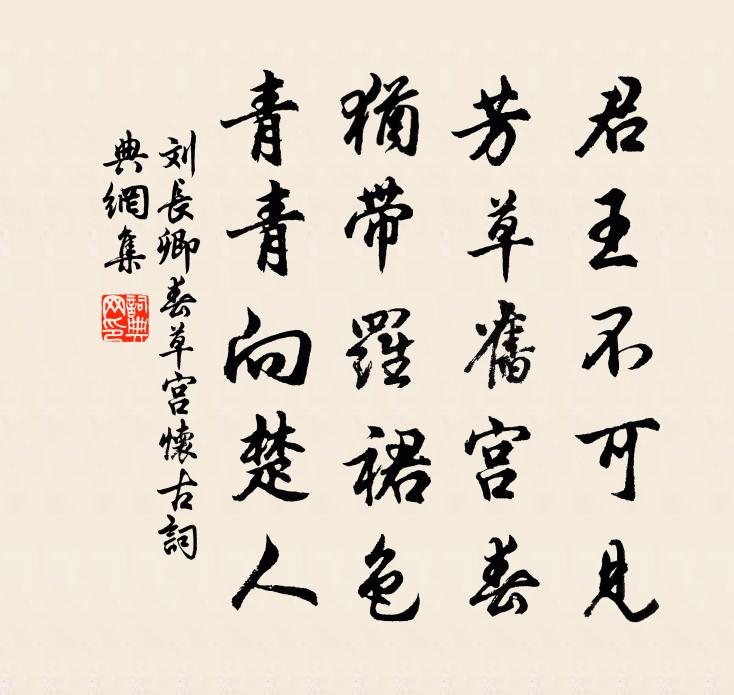 君王不可見
芳草舊宮春
猶帶羅裙色
青青向楚人
刘長卿春草宮懷古詞
典網集
詞典網印